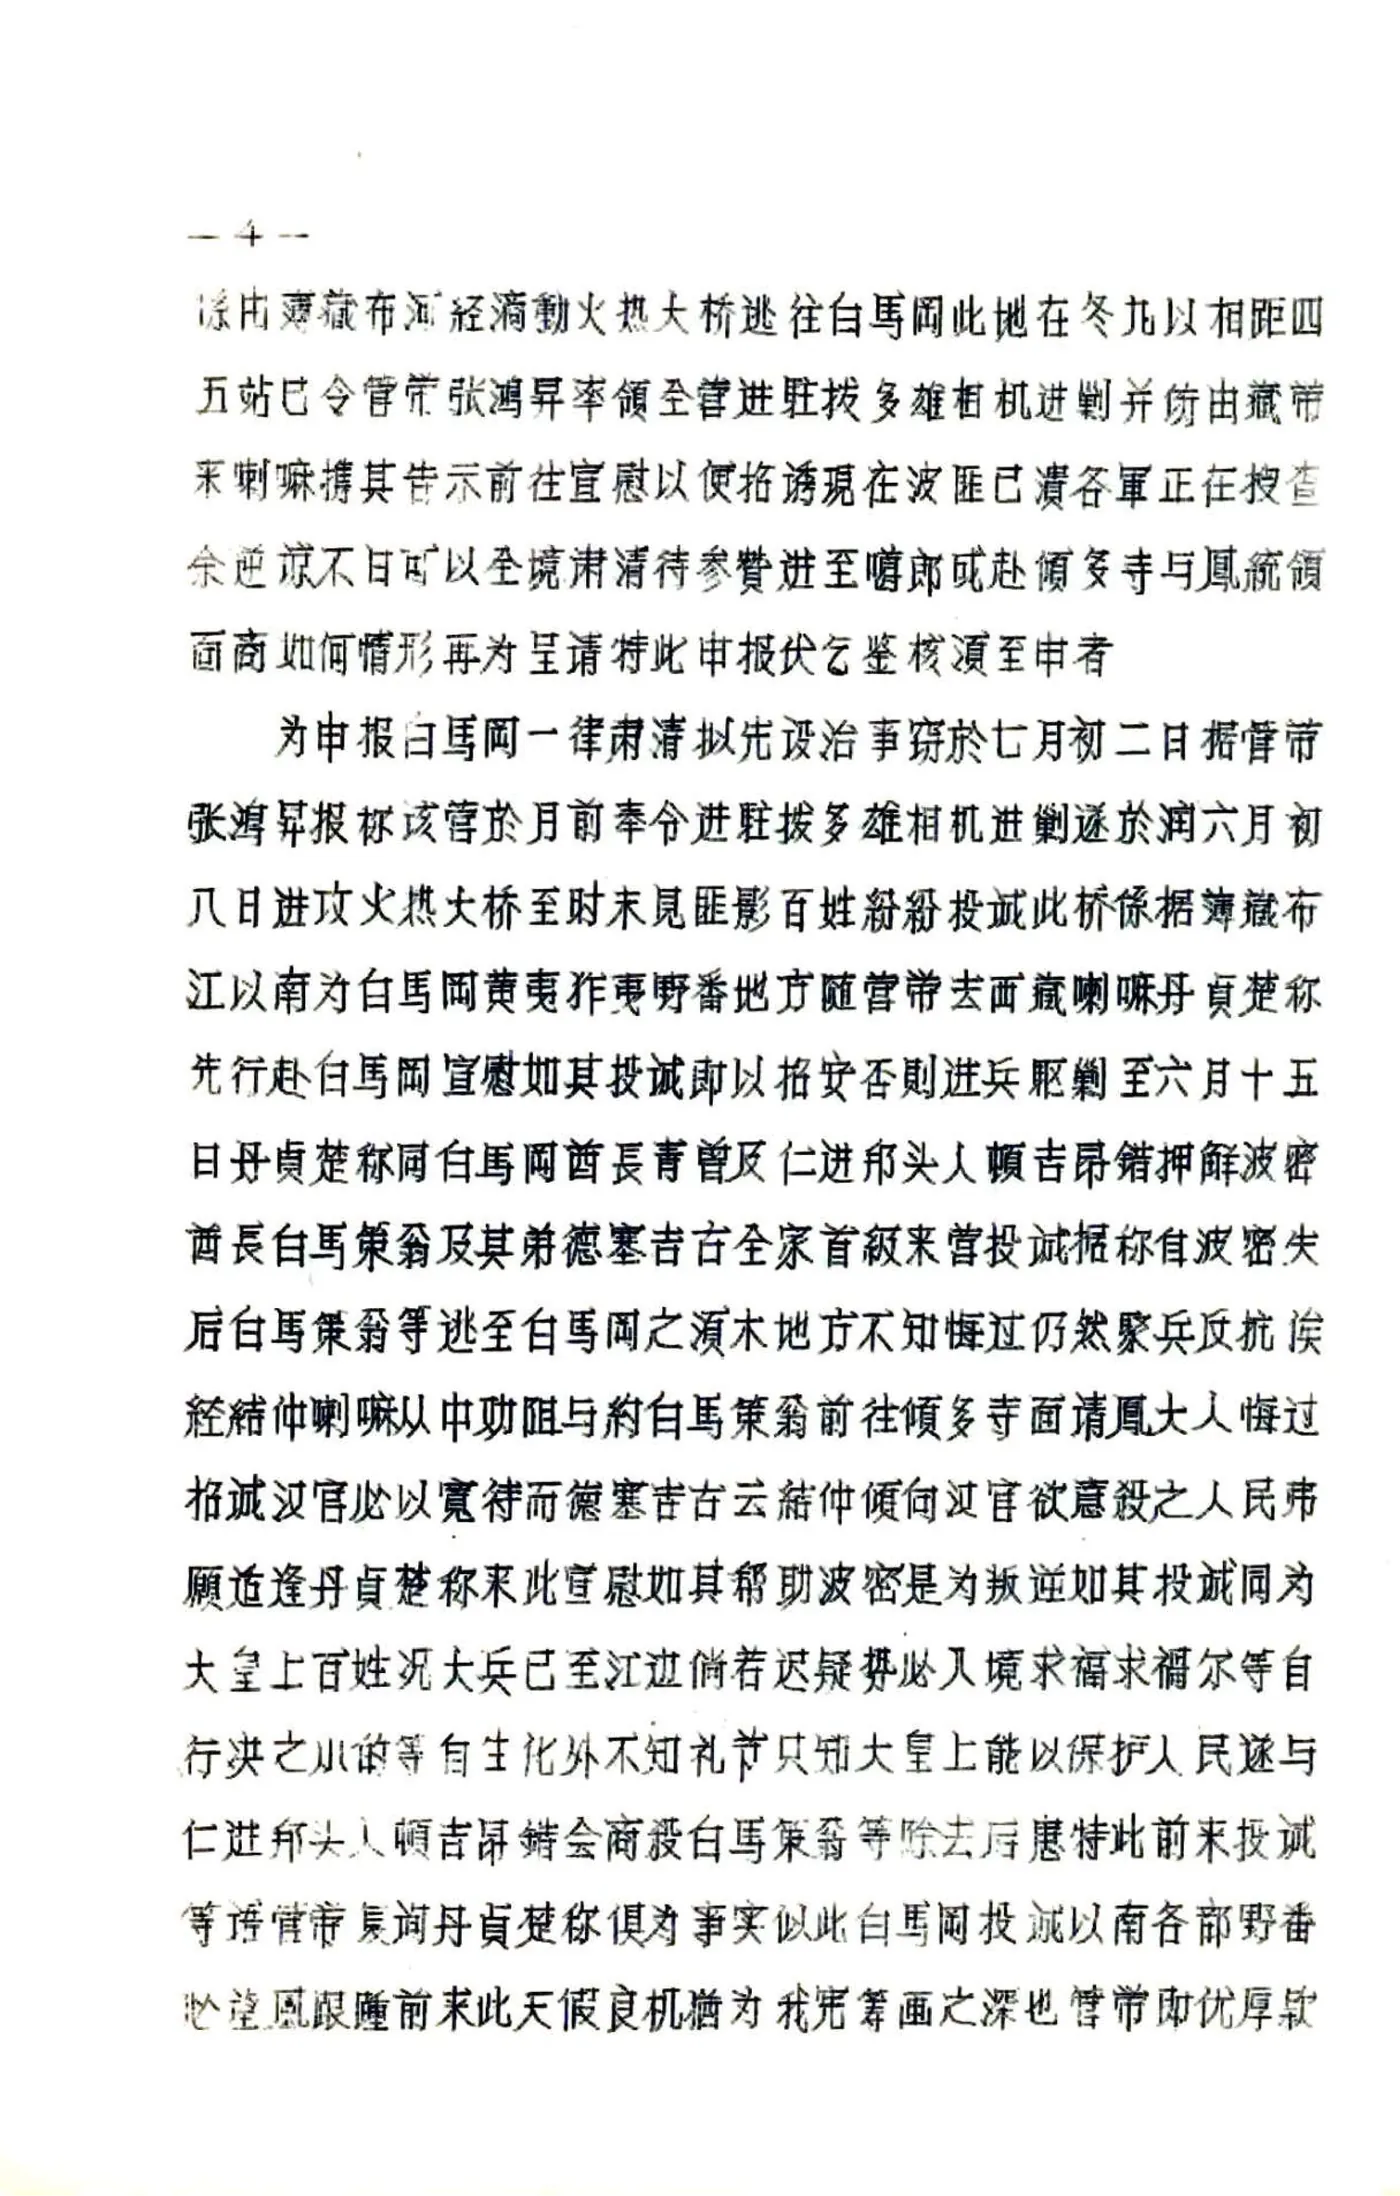 — 4 —
係由薄藏布河经滴動火热大桥逃往白馬岡此地在冬九以相距四
五站已令管带张鸿昇率領全营进駐拔多雄相机进剿并飭由藏带
来喇嘛携其告示前往宣慰以便招诱現在波匪已潰各軍正在搜查
余逆諒不日可以全境肃清待参贊进至嚋郎或赴傾多寺与鳳統領
面商如何情形再为呈请特此申报伏乞鉴核湏至申者
为申报白馬岡一律肃清拟先设治事窃於七月初二日据管带
张鸿昇报称该营於月前奉令进駐拔多雄相机进剿遂於润六月初
八日进攻火热大桥至时未見匪影百姓紛紛投诚此桥係据薄藏布
江以南为白馬岡黄夷犵夷野番地方随营带去西藏喇嘛丹貞楚称
先行赴白馬岡宣慰如其投诚即以招安否則进兵駆剿至六月十五
日丹貞楚称同白馬岡酋長青曾及仁进邦头人頓吉昂錯押解波密
酋長白馬策翁及其弟德塞吉古全家首級来营投诚据称自波密失
后白馬策翁等逃至白馬岡之湏木地方不知悔过仍然聚兵反抗俟
经結仲喇嘛从中劝阻与約白馬策翁前往傾多寺面请鳳大人悔过
招诚汉官必以寬待而德塞吉古云結仲傾向汉官欲意殺之人民弗
願适逢丹貞楚称来此宣慰如其帮助波密是为叛逆如其投诚同为
大皇上百姓况大兵已至江边倘若迟疑势必入境求福求禍尔等自
行决之小的等自生化外不知礼节只知大皇上能以保护人民遂与
仁进邦头人頓吉昂錯会商殺白馬策翁等除去后患特此前来投诚
等语管带复询丹貞楚称俱为事实似此白馬岡投诚以南各部野番
必望風跟踵前来此天假良机猶为我宪筹画之深也管带即优厚款